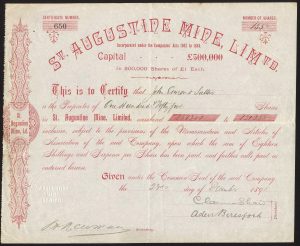 CERTIFICATE NUMBER.
650
NUMBER OF SHARES.
ST. AUGUSTINE MINE, LIMTD.
Incorporated under the Companies Acts 1862 to 1883.
Capital £500,000
In 500,000 Shares of £1 Each.
This is to Certify that John
is the Proprietor of One Hundred Shares
in St. Augustine Mine, Limited, numbered to
inclusive, subject to the provisions of the Memorandum and Articles of
Association of the said Company, upon which the sum of Eighteen
Shillings and Sixpence per Share has been paid, and further calls paid as
endorsed hereon.
Given under the Common Seal of the said Company
the day of 189
Aden Beresford
St. Augustine
Mine, Ltd.